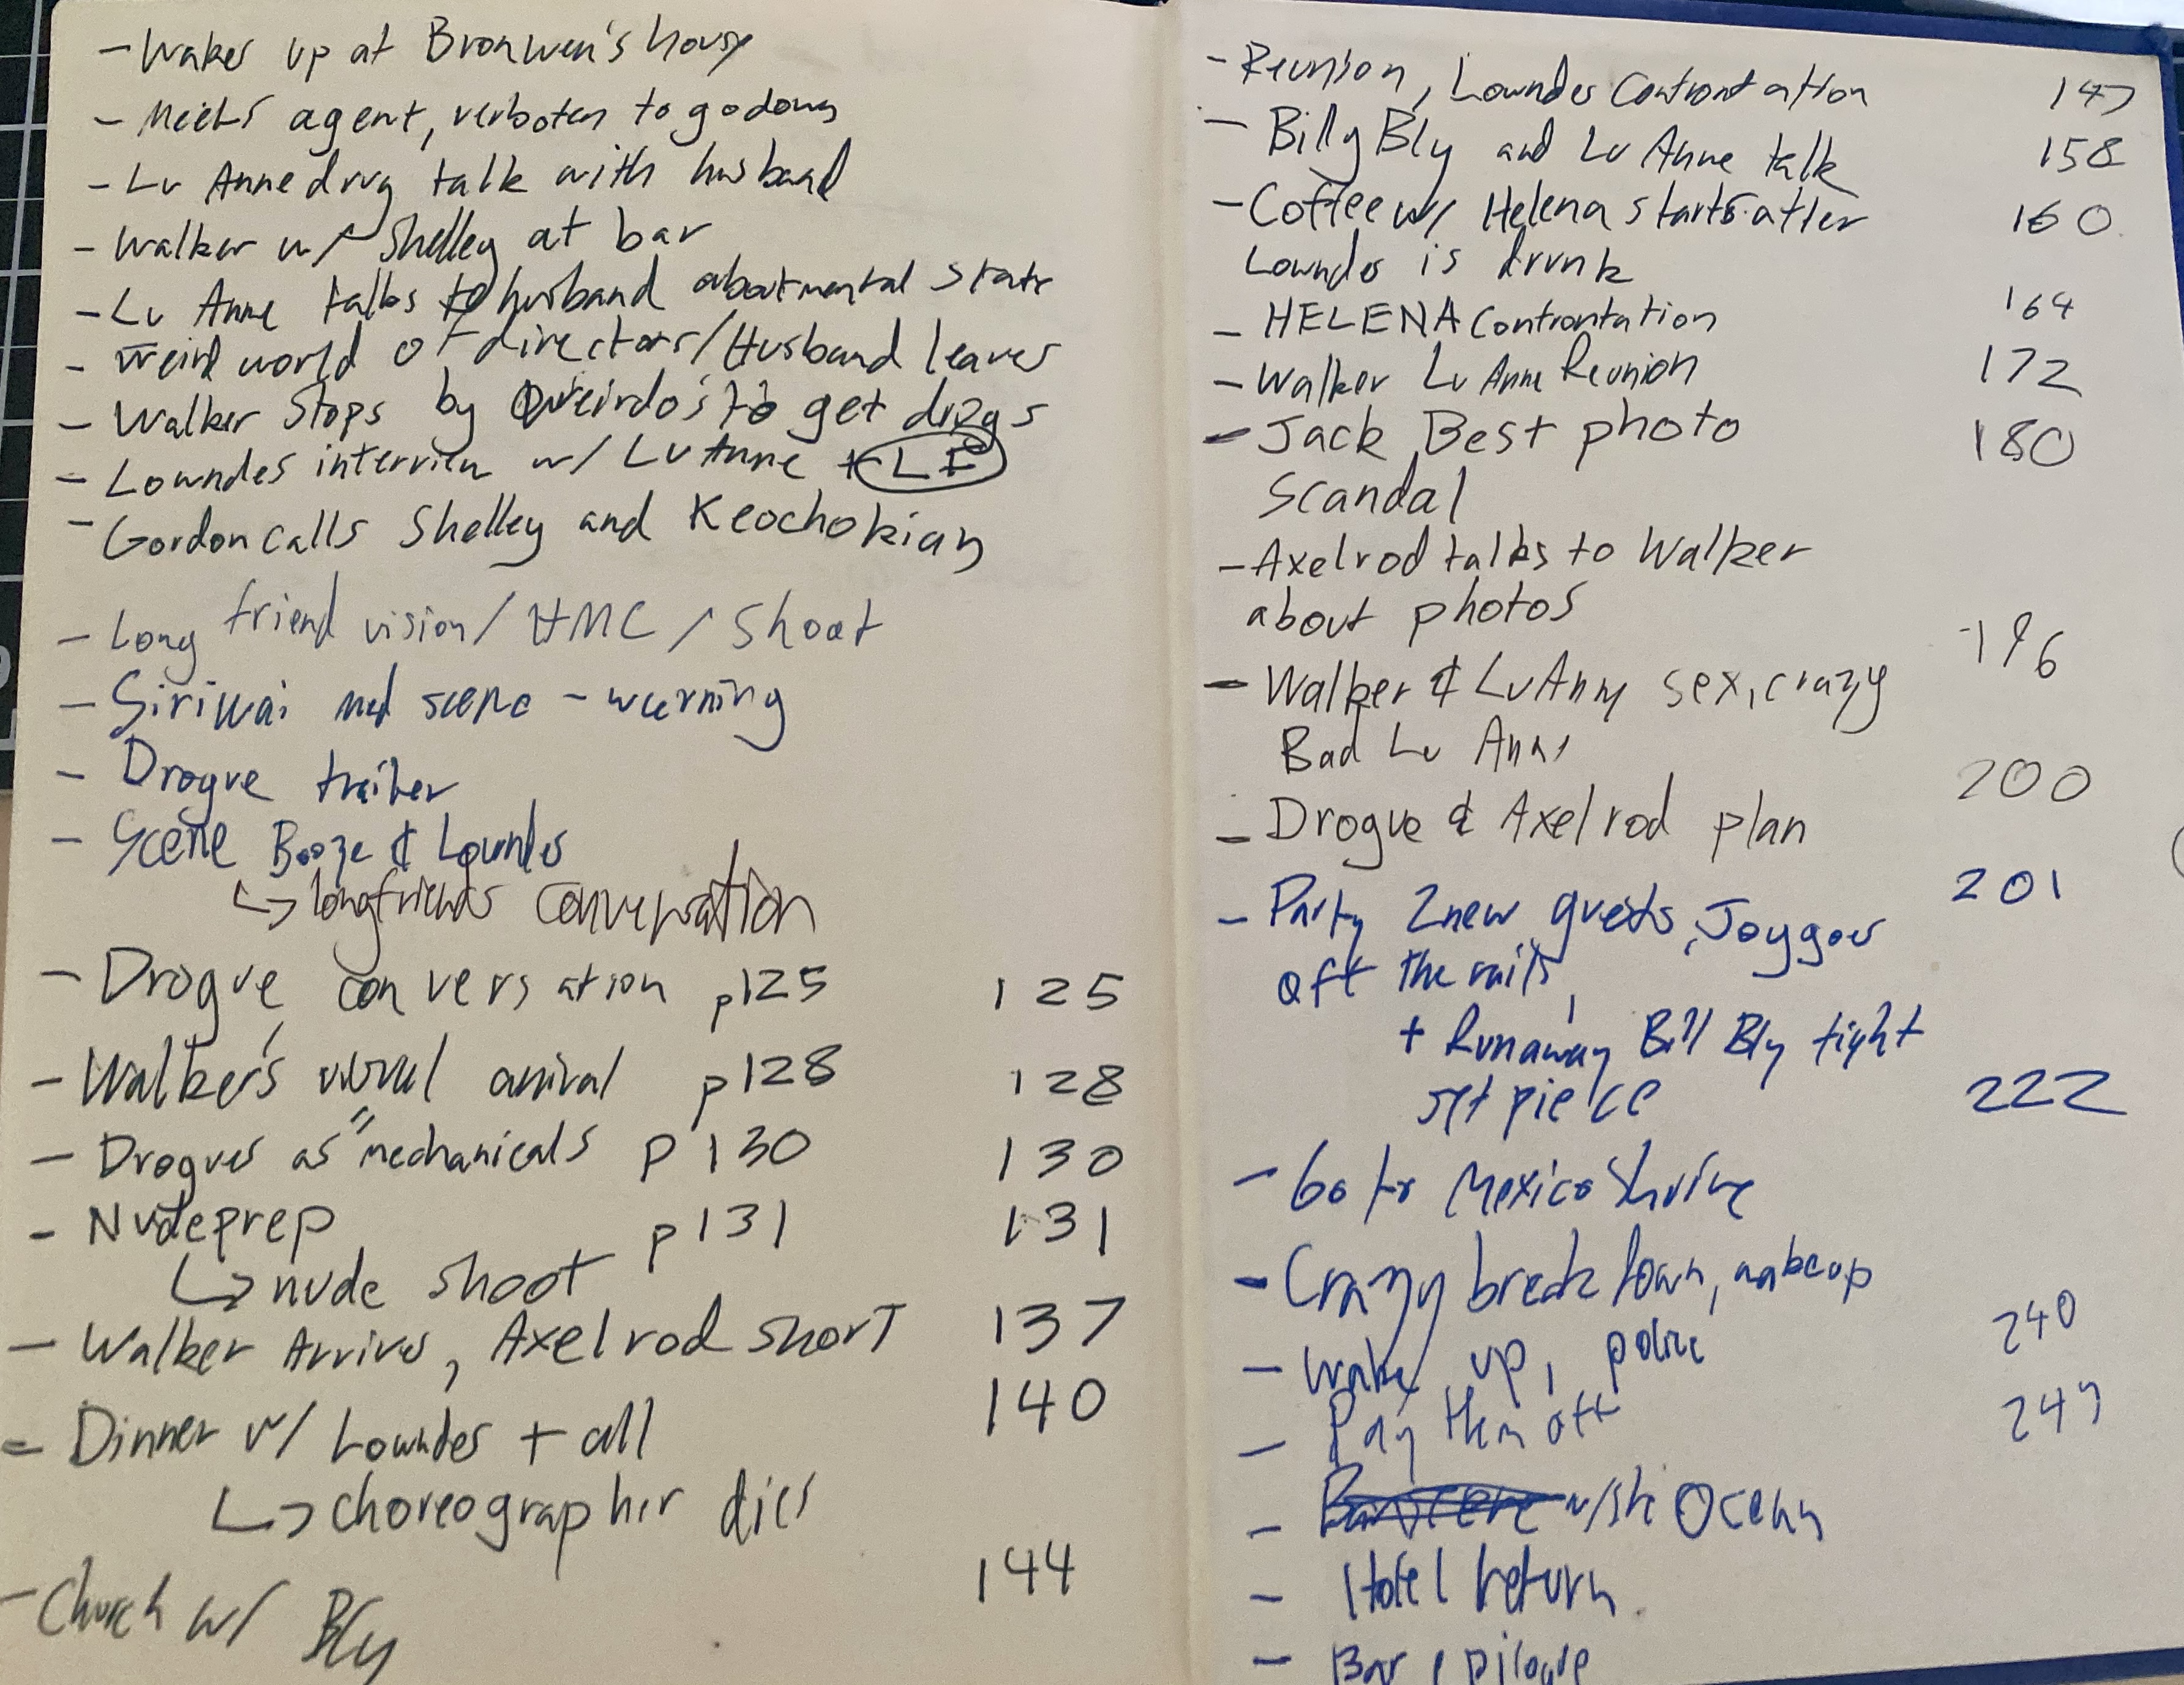 - Wakes up at Bronwen's house
- Meets agent, verboten to go down
- Lu Anne drug talk with husband
- Walker w/ Shelley at bar
- Lu Anne talks to husband about mental state
- Weird world of directors/Husband leaves
- Walker Stops by Qweirdo's to get drugs
- Lowndes interview w/ Lu Anne + LF
- Gordon calls Shelley and Keochokian
- Long friend vision/HMC/Shoot
- Siriwai med scene - warning
- Drogue trailer
- Scene Booze & Lowndes
↳ longfriends conversation
- Drogue conversation p125 125
- Walker's arrival p128 128
- Drogues as "mechanicals p 130 130
- Nudeprep p131 131
↳ nude shoot
- Walker Arrives, Axelrod short 137
- Dinner w/ Lowndes + all 140
↳ choreographer dies
- Church w/ Bly 144
- Reunion, Lowndes Confrontation 147
- Billy Bly and Lu Anne talk 158
- Coffee w/ Helena starts after 160
Lowndes is drunk
- HELENA Confrontation 164
- Walker Lu Anne Reunion 172
- Jack Best photo 180
Scandal
- Axelrod talks to Walker
about photos
- Walker & Lu Anne sex, crazy 196
Bad Lu Anne
- Drogue & Axelrod plan 200
- Party 2 new guests, Joy goes 201
off the rails,
+ Runaway Bill Bly fight
set piece 222
- Go to Mexico Shrine
- Crazy breakdown, makeup
- Wake up, police 240
- Pay them off 247
- w/ she Ocean
- Hotel return
- Bar epilogue